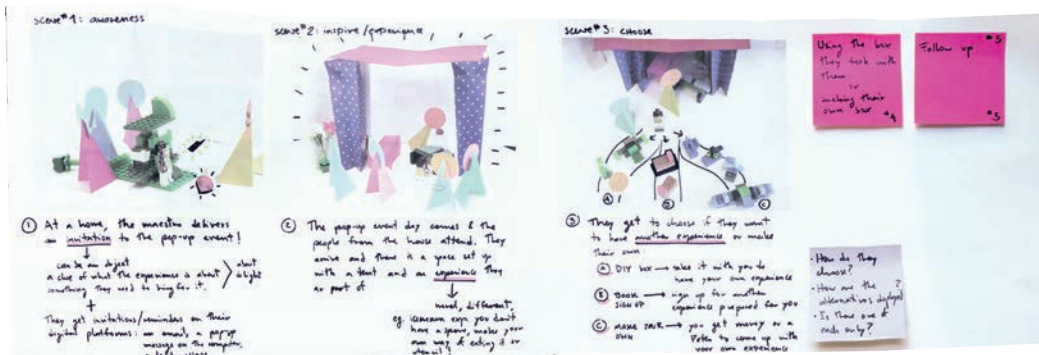 scene #1: awareness
① At a home, the maestro delivers
an invitation to the pop-up event!
can be an object
a clue of what the experience is about
something they need to bring for it.
about
delight
+
They get invitations/reminders on their
digital platforms: an email, a pop up
message on the computer,
scene #2: inspire/experience
② The pop-up event day comes & the
people from the house attend. They
arrive and there is a space set up
with a tent and an experience they
are part of
novel, different,
eg. icecream expo you don't
have a spoon, makes your
own way of eating it or
utensil!
scene #3: CHOOSE
A
B
C
③ They get to choose if they want
to have another experience or make
their own
Ⓐ DIY box → take it with you to
have your own experience
Ⓑ BOOK → sign up for another
SIGN UP experience prepared for you
Ⓒ MAKE YOUR → you get money or a
OWN to come up with
your own experience
Using the box
they took with
them
or
making their
own box.
#4
#5
Follow up
#5
• How do they
choose?
• How are the ?
alternatives displayed
• Is there one of
ends only?